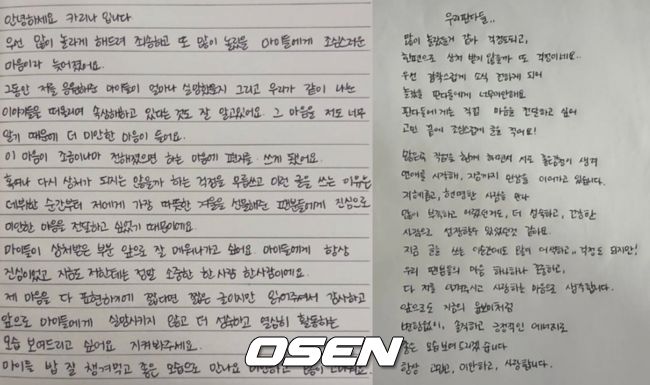 안녕하세요 카리나 입니다
우선 많이 놀라게 해드려 죄송하고 또 많이 놀랐을 마이들에게 조심스러운
마음이라 늦어졌어요.
그동안 저를 응원해준 마이들이 얼마나 실망했을지 그리고 우리가 같이 나눈
이야기들을 떠올리며 속상해하고 있다는 것도 잘 알고있어요. 그 마음을 저도 너무
알기 때문에 더 미안한 마음이 들어요.
이 마음이 조금이나마 전해졌으면 하는 마음에 편지를 쓰게 됐어요.
혹여나 다시 상처가 되지는 않을까 하는 걱정을 무릅쓰고 이런 글을 쓰는 이유는
데뷔한 순간부터 저에게 가장 따뜻한 겨울을 선물해준 팬분들에게 진심으로
미안한 마음을 전달하고 싶었기 때문이에요.
마이들이 상처받은 부분 앞으로 잘 메워나가고 싶어요. 마이들에게 항상
진심이었고 지금도 저한테는 정말 소중한 한사람 한사람이에요.
제 마음을 다 표현하기에 짧다면 짧은 글이지만 읽어주셔서 감사하고
앞으로 마이들에게 실망시키지 않고 더 성숙하고 열심히 활동하는
모습 보여드리고 싶어요 지켜봐주세요.
마이들 밥 잘 챙겨먹고 좋은 모습으로 만나요 미안하고
우리판다들..
많이 놀랐을거 같아 걱정도되고,
한편으로 상처 받지 않을까 또 걱정이네요..
우선 갑작스럽게 소식 전하게 되어
놀랐을 판다들에게 너무미안해요
판다들에게는 직접 마음을 전달하고 싶어
고민 끝에 조심스럽게 글을 적어요!
같은 직업을 함께 하면서 서로 좋은감정이 생겨
연애를 시작해, 지금까지 만남을 이어가고 있습니다.
지혜롭고, 현명한 사람을 만나
많이 부족하고 어렸던저도, 더 성숙하고, 건강한
사람으로 성장할수 있었던것 같아요.
지금 글을 쓰는 이순간에도 많이 떨리고.. 걱정도 되지만!
우리 팬분들의 마음 하나하나 존중하고,
다 저를 아껴주시고 사랑하는 마음으로 생각합니다.
앞으로도 지금의 윤보미처럼
변함없이, 솔직하고 긍정적인 에너지로
좋은 모습 보여드리겠습니다
항상 고맙고, 미안하고, 사랑합니다.
OSEN